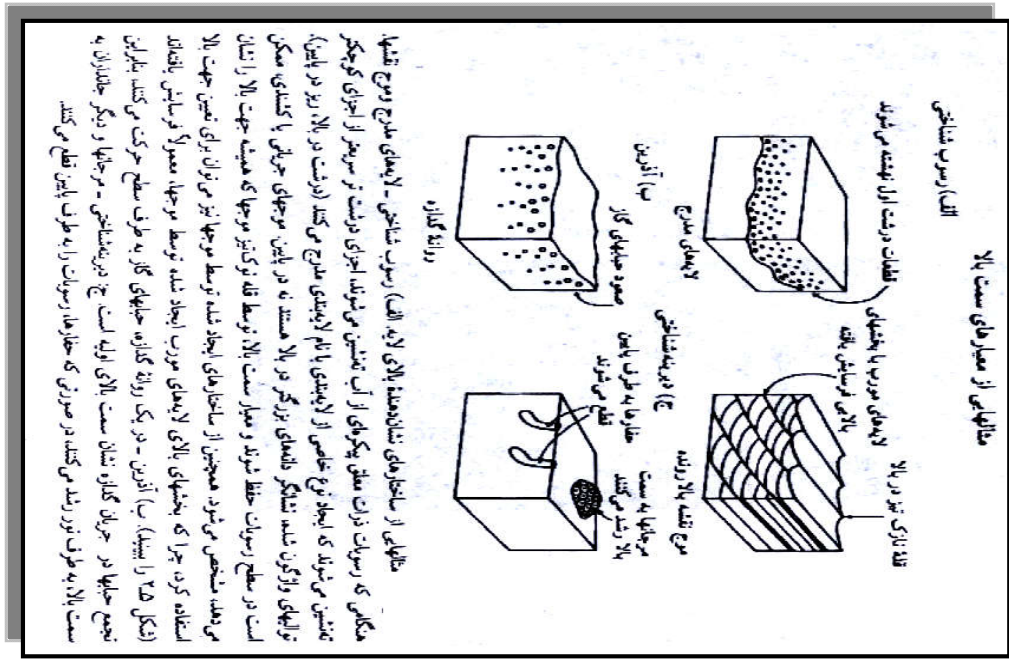 مثالهایی از معیارهای سمت بالا
الف) رسوب شناختی
قطعات درشت اول نهشته می‌شوند
لایه‌های مورب با بخشهای
بالایی فرسایش یافته
قلهٔ نازک تیز در بالا
لایه‌های مدرج
موج نقشه بالا رونده
ب) آذرین
صعود حبابهای گاز
روانهٔ گدازه
ج) دیرینه‌شناختی
حفارها به طرف پایین
قطع می‌شوند
مرجانها به سمت
بالا رشد می‌کنند
مثالهایی از ساختارهای نشان‌دهندهٔ بالای لایه. الف) رسوب شناختی ـ لایه‌های مدرج و موج نقشها.
هنگامی که رسوبات ذرات معلق پیکره‌ای از آب ته‌نشین می‌شوند، اجزای درشت‌تر سریعتر از اجزای کوچکتر
ته‌نشین می‌شوند که ایجاد نوع خاصی از لایه‌بندی با نام لایه‌بندی مدرج می‌کنند (درشت در بالا، ریز در پایین).
توالیهای واژگون شده، نشانگر دانه‌های بزرگتر در بالا هستند نه در پایین. موجهای جریانی یا کشندی، ممکن
است در سطح رسوبات حفظ شوند و معیار سمت بالا، توسط قله نوک‌تیز موجها که همیشه جهت بالا را نشان
می‌دهد، مشخص می‌شود. همچنین از ساختارهای ایجاد شده توسط موجها نیز می‌توان برای تعیین جهت بالا
استفاده کرد، چرا که بخشهای بالای لایه‌های مورب ایجاد شده توسط موجها، معمولاً فرسایش یافته‌اند
(شکل ۲.۵ را ببینید). ب) آذرین ـ در یک روانهٔ گدازه، حبابهای گاز به طرف سطح حرکت می‌کنند، بنابراین
تجمع حبابها در جریان گدازه نشان سمت بالای اولیه است. ج) دیرینه‌شناختی ـ مرجانها و دیگر جانداران به
سمت بالا، به طرف نور رشد می‌کنند، در صورتی که حفارها، رسوبات را به طرف پایین قطع می‌کنند.